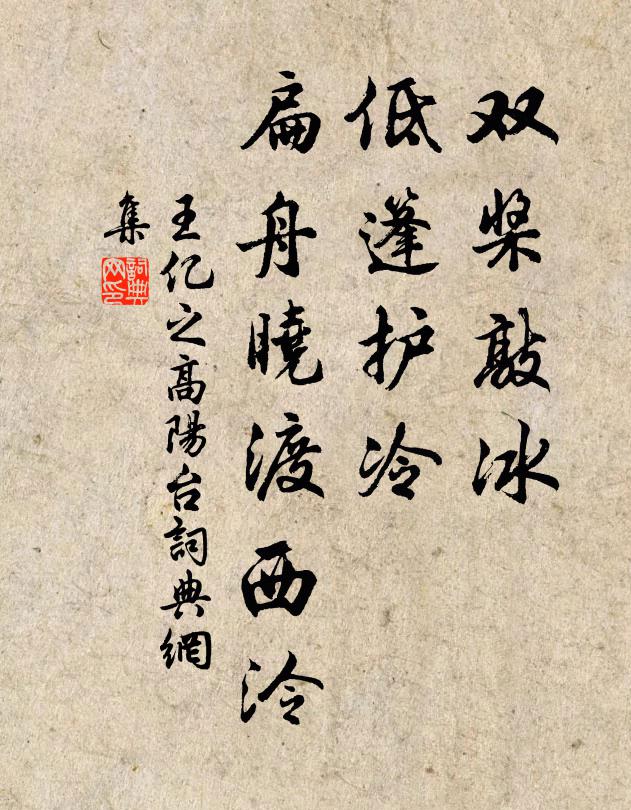 双桨敲冰
低篷护冷
扁舟曉渡西泠
王亿之高陽台詞典網
集
詞典
网印